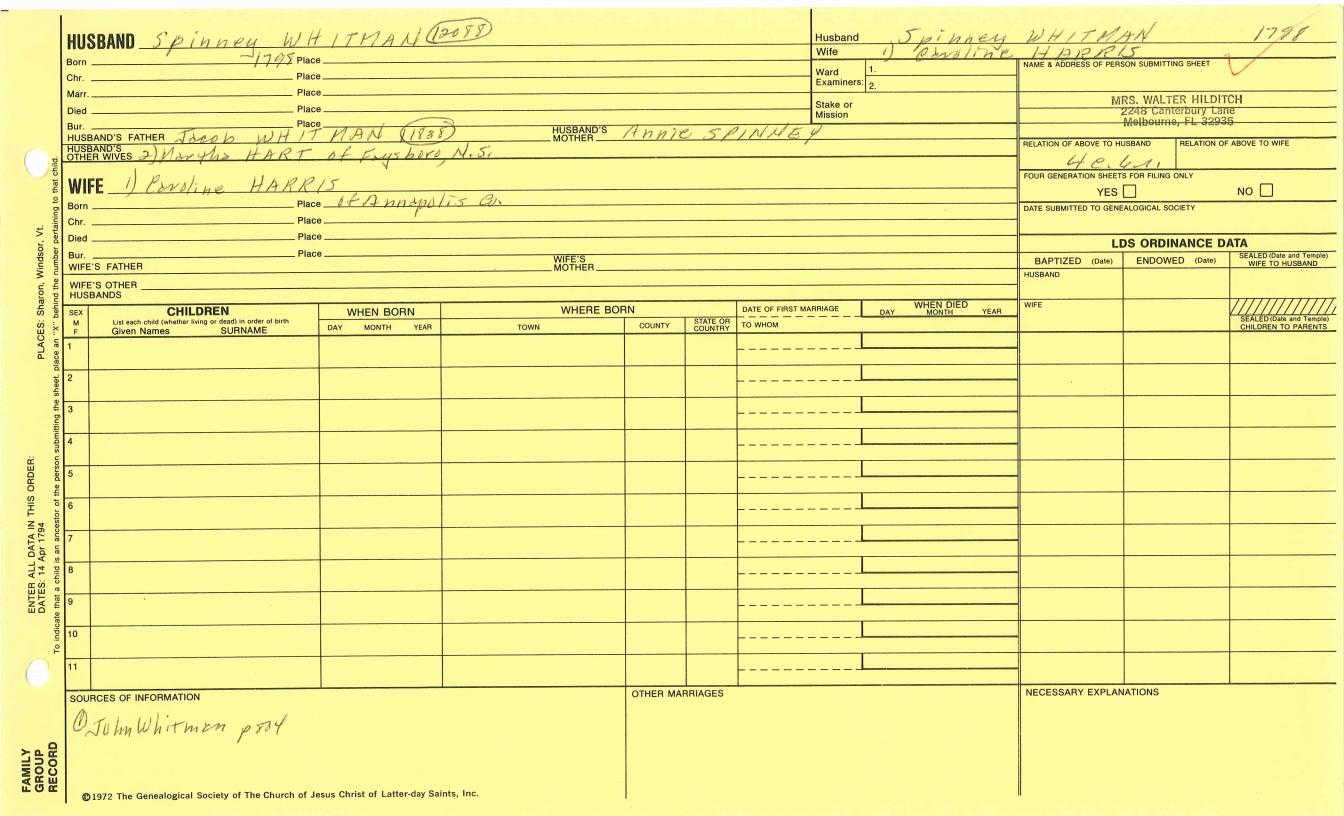 HUSBAND Spinney WHITMAN (12088)
Born 1798 Place
Chr. Place
Marr. Place
Died Place
Bur. Place
HUSBAND'S FATHER Jacob WHITMAN HUSBAND'S MOTHER Annie SPINNEY
HUSBAND'S OTHER WIVES 2) Martha HART of N.S.
WIFE 1) Caroline HARRIS
Born Place of Annapolis Co.
Chr. Place
Died Place
Bur. Place
WIFE'S FATHER WIFE'S MOTHER
WIFE'S OTHER HUSBANDS
Husband Spinney WHITMAN 1798
Wife 1) Caroline HARRIS
Ward Examiners: 1.
2.
Stake or Mission
NAME & ADDRESS OF PERSON SUBMITTING SHEET
MRS. WALTER HILDITCH
2248 Canterbury Lane
Melbourne, FL 32935
RELATION OF ABOVE TO HUSBAND RELATION OF ABOVE TO WIFE
FOUR GENERATION SHEETS FOR FILING ONLY
YES NO
DATE SUBMITTED TO GENEALOGICAL SOCIETY
LDS ORDINANCE DATA
BAPTIZED (Date) ENDOWED (Date) SEALED (Date and Temple) WIFE TO HUSBAND
HUSBAND
WIFE
SEALED (Date and Temple) CHILDREN TO PARENTS
SEX M F
CHILDREN
List each child (whether living or dead) in order of birth
Given Names SURNAME
WHEN BORN
DAY MONTH YEAR
WHERE BORN
TOWN COUNTY STATE OR COUNTRY
DATE OF FIRST MARRIAGE
TO WHOM
WHEN DIED
DAY MONTH YEAR
1
2
3
4
5
6
7
8
9
10
11
SOURCES OF INFORMATION
① John Whitman p 804
OTHER MARRIAGES
NECESSARY EXPLANATIONS
©1972 The Genealogical Society of The Church of Jesus Christ of Latter-day Saints, Inc.
ENTER ALL DATA IN THIS ORDER:
DATES: 14 Apr 1794 PLACES: Sharon, Windsor, Vt.
To indicate that a child is an ancestor of the person submitting the sheet, place an "X" behind the number pertaining to that child.
FAMILY GROUP RECORD